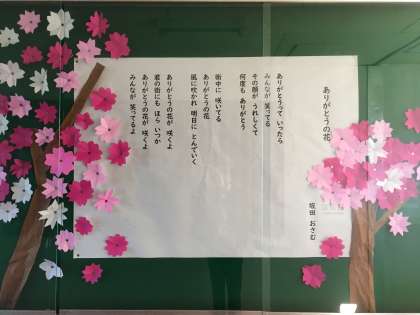 ありがとうの花
坂田 おさむ
ありがとうって いったら
みんなが 笑ってる
その顔が うれしくて
何度も ありがとう
街中に 咲いてる
ありがとうの花
風に吹かれ 明日に とんでいく
ありがとうの花が 咲くよ
君の街にも ほら いつか
ありがとうの花が 咲くよ
みんなが 笑ってるよ